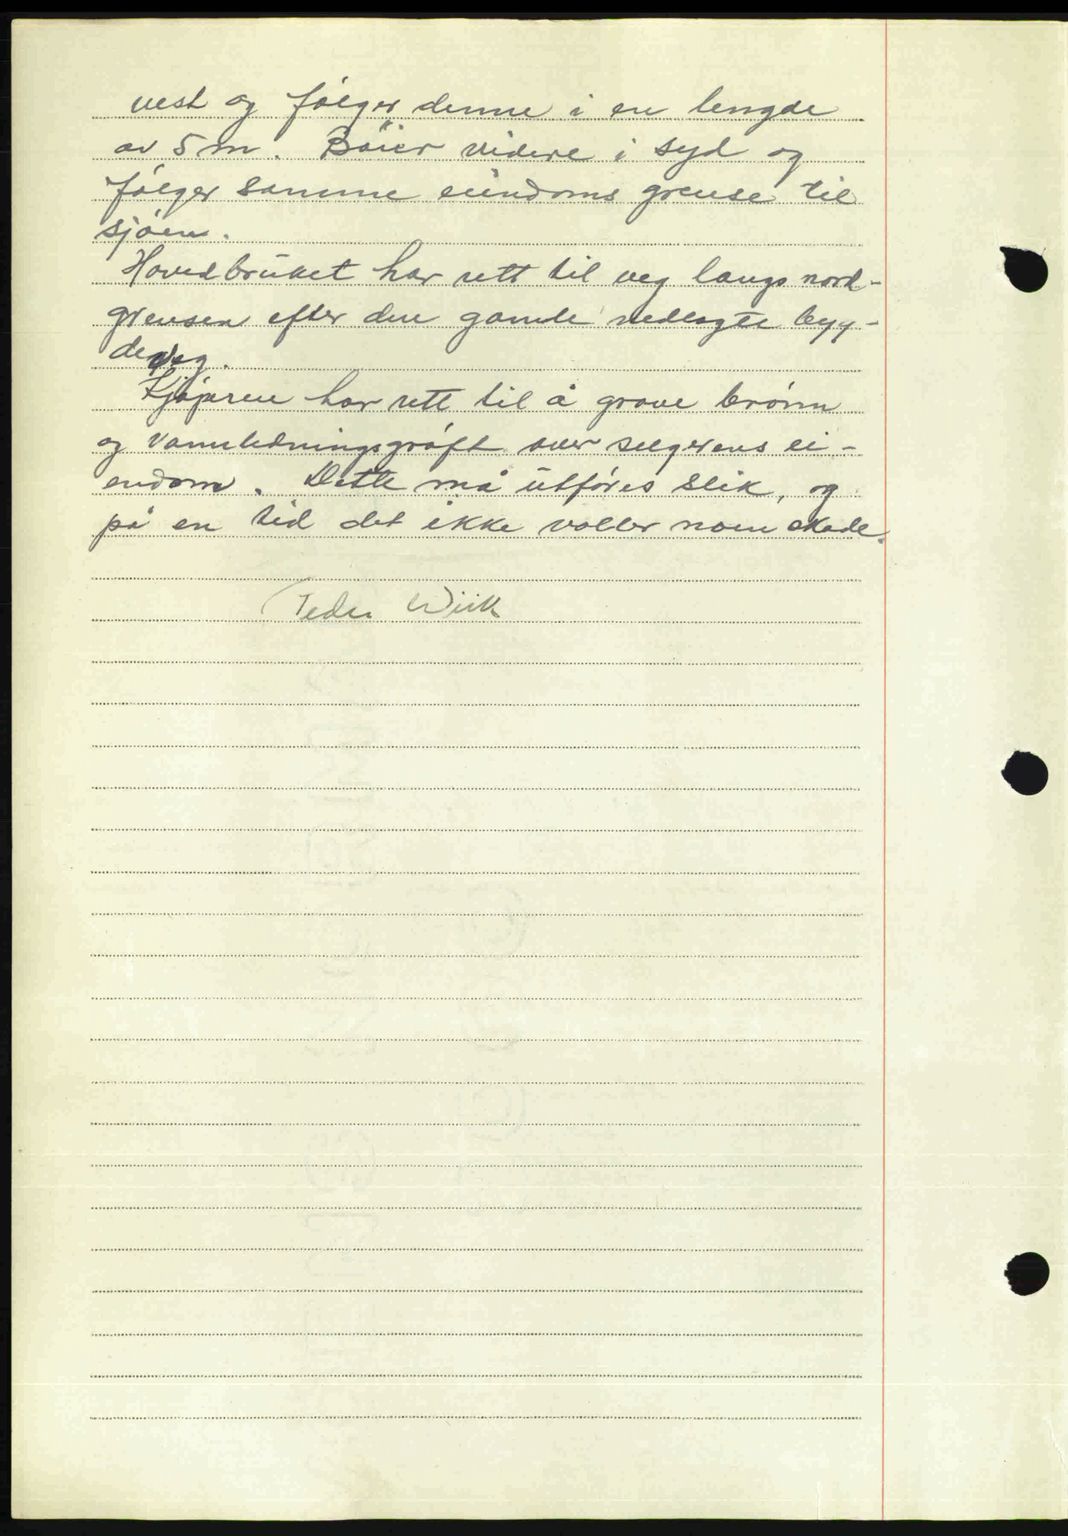 vest og følger denne i en lengde
av 5 m. Bøier videre i syd og
følger samme eiindoms grense til
sjøen.
Hovedbruket har rett til veg langs nord-
grensen efter den gamle nedlagte byg-
deveg.
Kjøperen har rett til å grave brønn
og vannledningsgrøft over selgerens ei-
endom. Dette må utføres slik, og
på en tid det ikke voller noen skade.
Peder Wiik